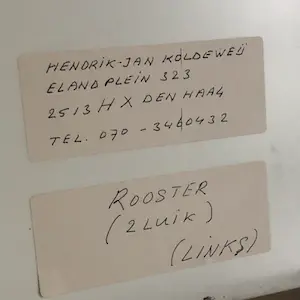 HENDRIK-JAN KOLDEWEIJ
ELANDPLEIN 323
2513 HX DEN HAAG
TEL. 070-3460432
ROOSTER
(2LUIK)
(LINKS)